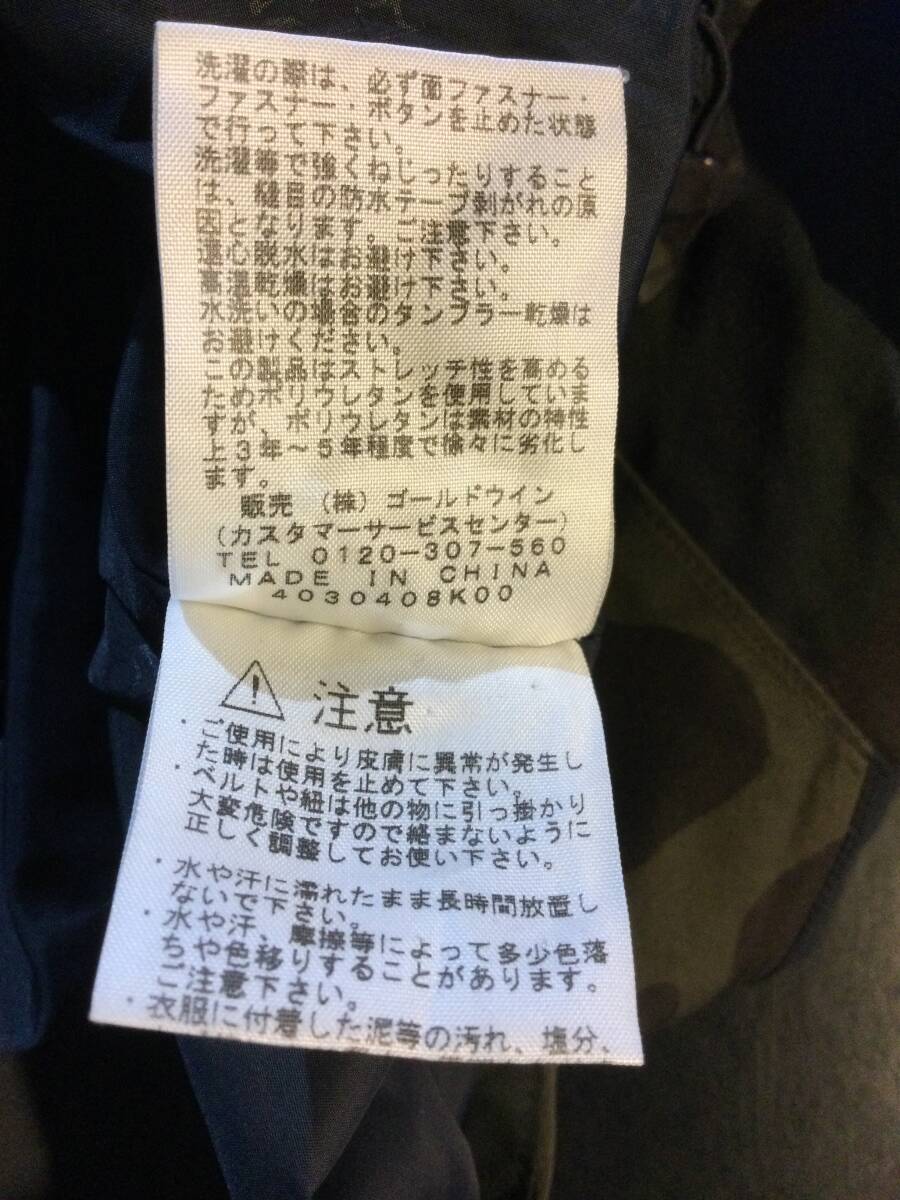 洗濯の際は、必ず面ファスナー・
ファスナー・ボタンを止めた状態
で行って下さい。
洗濯等で強くねじったりすること
は、縫目の防水テープ剥がれの原
因となります。ご注意下さい。
遠心脱水はお避け下さい。
高温乾燥はお避け下さい。
水洗いの場合のタンブラー乾燥は
お避けください。
この製品はストレッチ性を高める
ためポリウレタンを使用していま
すが、ポリウレタンは素材の特性
上3年～5年程度で徐々に劣化し
ます。
販売 (株) ゴールドウイン
(カスタマーサービスセンター)
TEL 0120-307-560
MADE IN CHINA
4030408K00
注意
・ご使用により皮膚に異常が発生し
た時は使用を止めて下さい。
・ベルトや紐は他の物に引っ掛かり
大変危険ですので絡まないように
正しく調整してお使い下さい。
・水や汗に濡れたまま長時間放置し
ないで下さい。
・水や汗、摩擦等によって多少色落
ちや色移りすることがあります。
ご注意下さい。
・衣服に付着した泥等の汚れ、塩分、